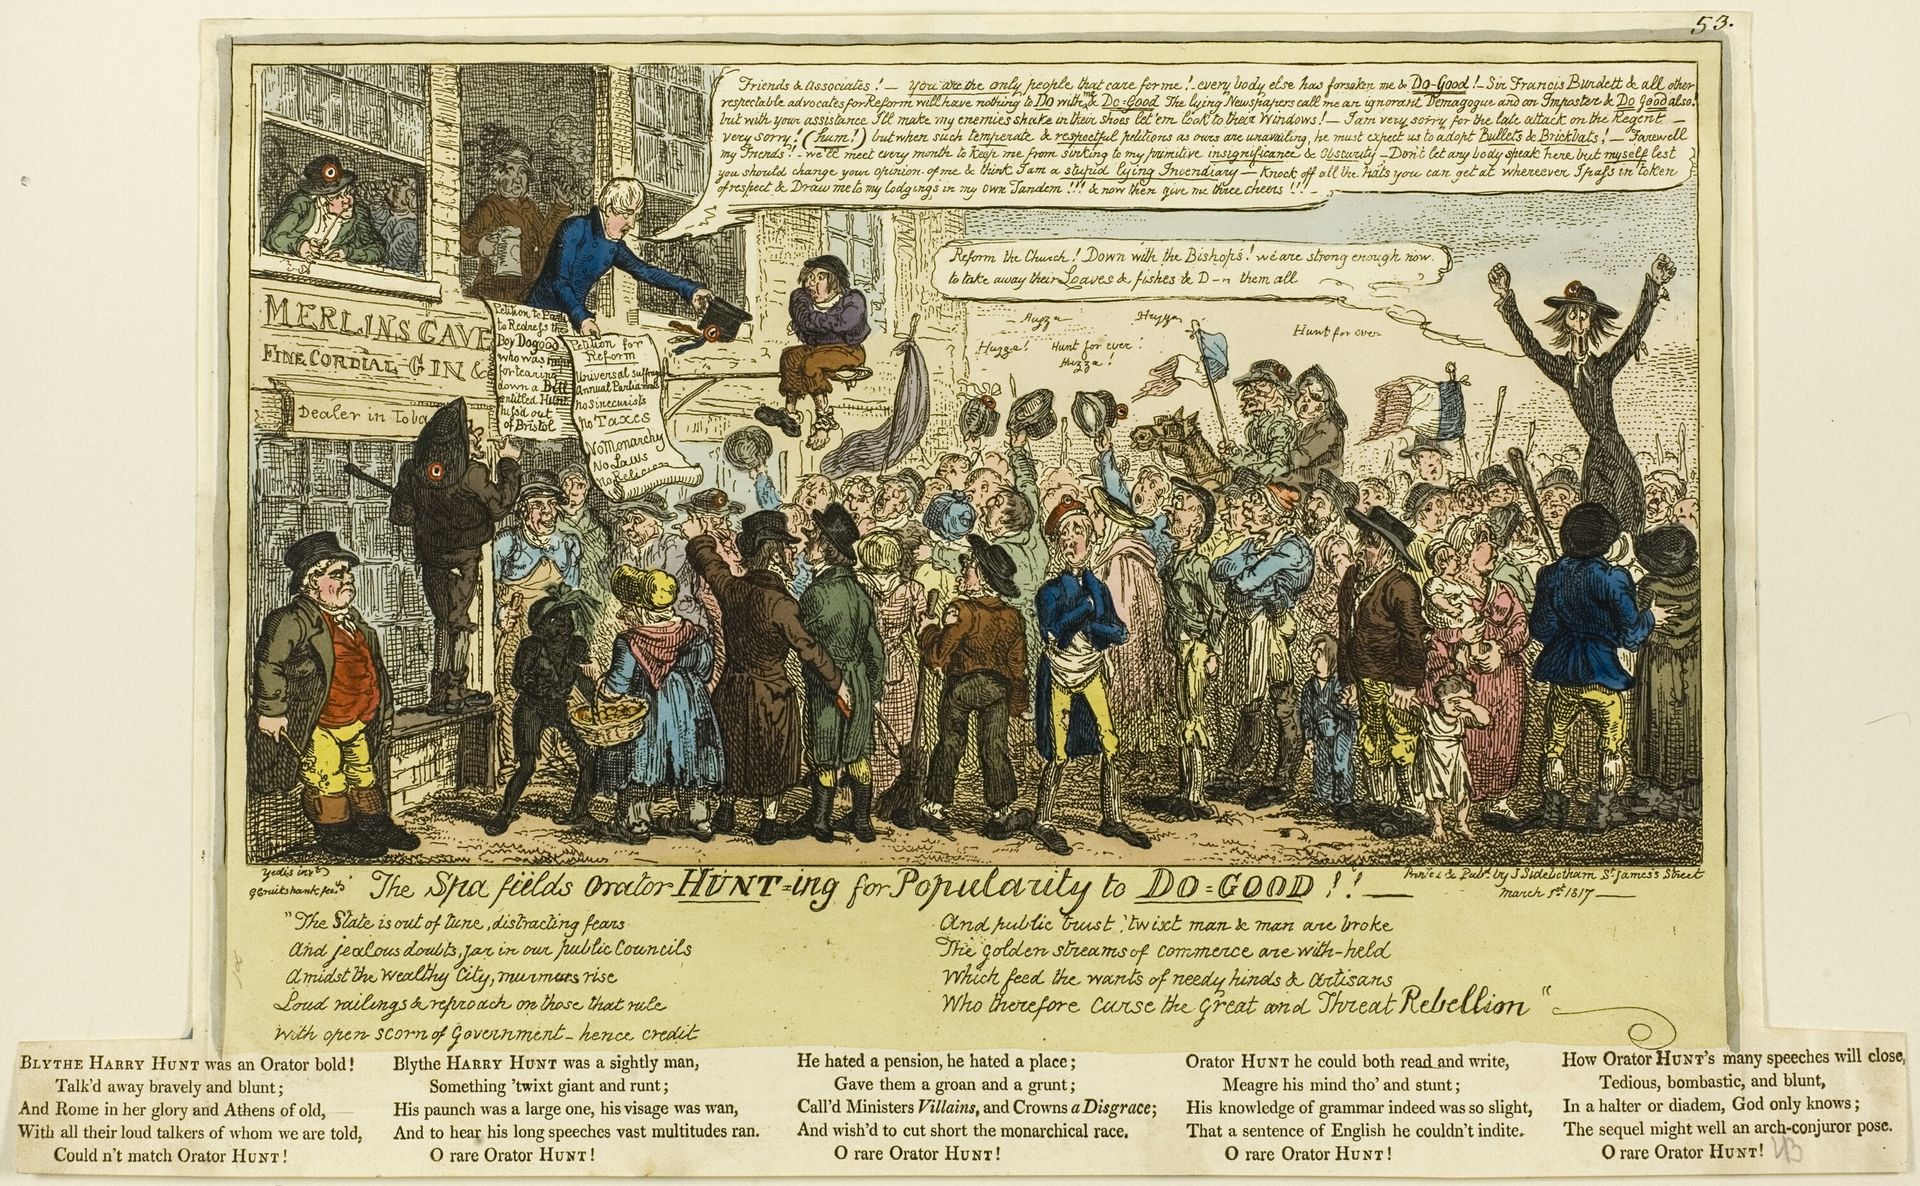 53.
Friends & Associates! — you are the only people that care for me! every body else has forsaken me & Do-Good! — Sir Francis Burdett & all other
respectable advocates for Reform will have nothing to Do with me & Do=Good The lying Newspapers call me an ignorant Demagogue and an Imposter & Do Good also!
but with your assistance I'll make my enemies shake in their shoes let 'em look to their Windows! — I am very sorry for the late attack on the Regent —
very sorry! (hum!) but when such temperate & respectful petitions as ours are unavailing, he must expect us to adopt Bullets & Brickbats! — Farewell
my Friends! — we'll meet every month to keep me from sinking to my primitive insignificance & Obscurity — Don't let any body speak here but myself lest
you should change your opinion of me & think I am a stupid lying Incendiary — Knock off all the hats you can get at whereever I pass in token
of respect & Draw me to my lodgings in my own Tandem!!! & now then give me three cheers!!!
Reform the Church! Down with the Bishops! we are strong enough now
to take away their Loaves & fishes & D—n them all
Huzza
Huzza
Hunt for ever
Huzza!
Hunt for ever!
Huzza!
MERLINS CAVE
FINE CORDIAL GIN &
Dealer in Toba
Petition to
to Redress the
Boy Dogood
who was
for tearing
down a Bill
entitled Hunt
hiss'd out
of Bristol
Petition for
Reform
Universal suffrage
Annual Parliaments
No Sinecurists
No Taxes
No Monarchy
No Laws
No Religion
Yedis invt
G Cruikshank fect
The Spa fields Orator HUNT=ing for Popularity to DO=GOOD!! —
Printed & Pubd by J Sidebotham St James's Street
March 1st 1817
"The State is out of tune, distracting fears
And jealous doubts, Jar in our public Councils
Amidst the wealthy City, murmurs rise
Loud railings & reproach on those that rule
With open scorn of Government — hence credit
And public trust 'twixt man & man are broke
The golden streams of commerce are with-held
Which feed the wants of needy hinds & Artisans
Who therefore Curse the Great and Threat Rebellion"
BLYTHE HARRY HUNT was an Orator bold!
Talk'd away bravely and blunt;
And Rome in her glory and Athens of old,
With all their loud talkers of whom we are told,
Could n't match Orator HUNT!
Blythe HARRY HUNT was a sightly man,
Something 'twixt giant and runt;
His paunch was a large one, his visage was wan,
And to hear his long speeches vast multitudes ran.
O rare Orator HUNT!
He hated a pension, he hated a place;
Gave them a groan and a grunt;
Call'd Ministers Villains, and Crowns a Disgrace;
And wish'd to cut short the monarchical race.
O rare Orator HUNT!
Orator HUNT he could both read and write,
Meagre his mind tho' and stunt;
His knowledge of grammar indeed was so slight,
That a sentence of English he couldn't indite.
O rare Orator HUNT!
How Orator HUNT's many speeches will close,
Tedious, bombastic, and blunt,
In a halter or diadem, God only knows;
The sequel might well an arch-conjuror pose.
O rare Orator HUNT!